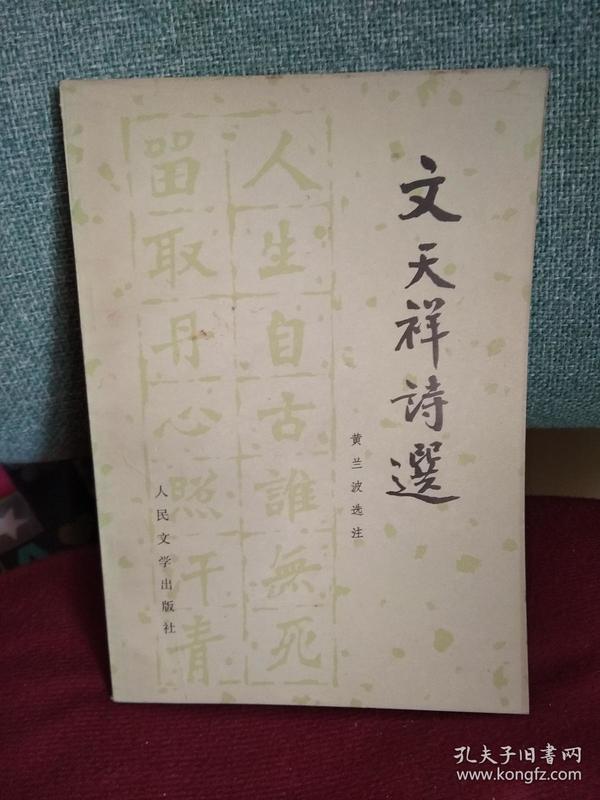 文天祥詩選
黄兰波选注
人生自古誰無死
畱取丹心照汗青
人民文学出版社
孔夫子旧书网
www.kongfz.com